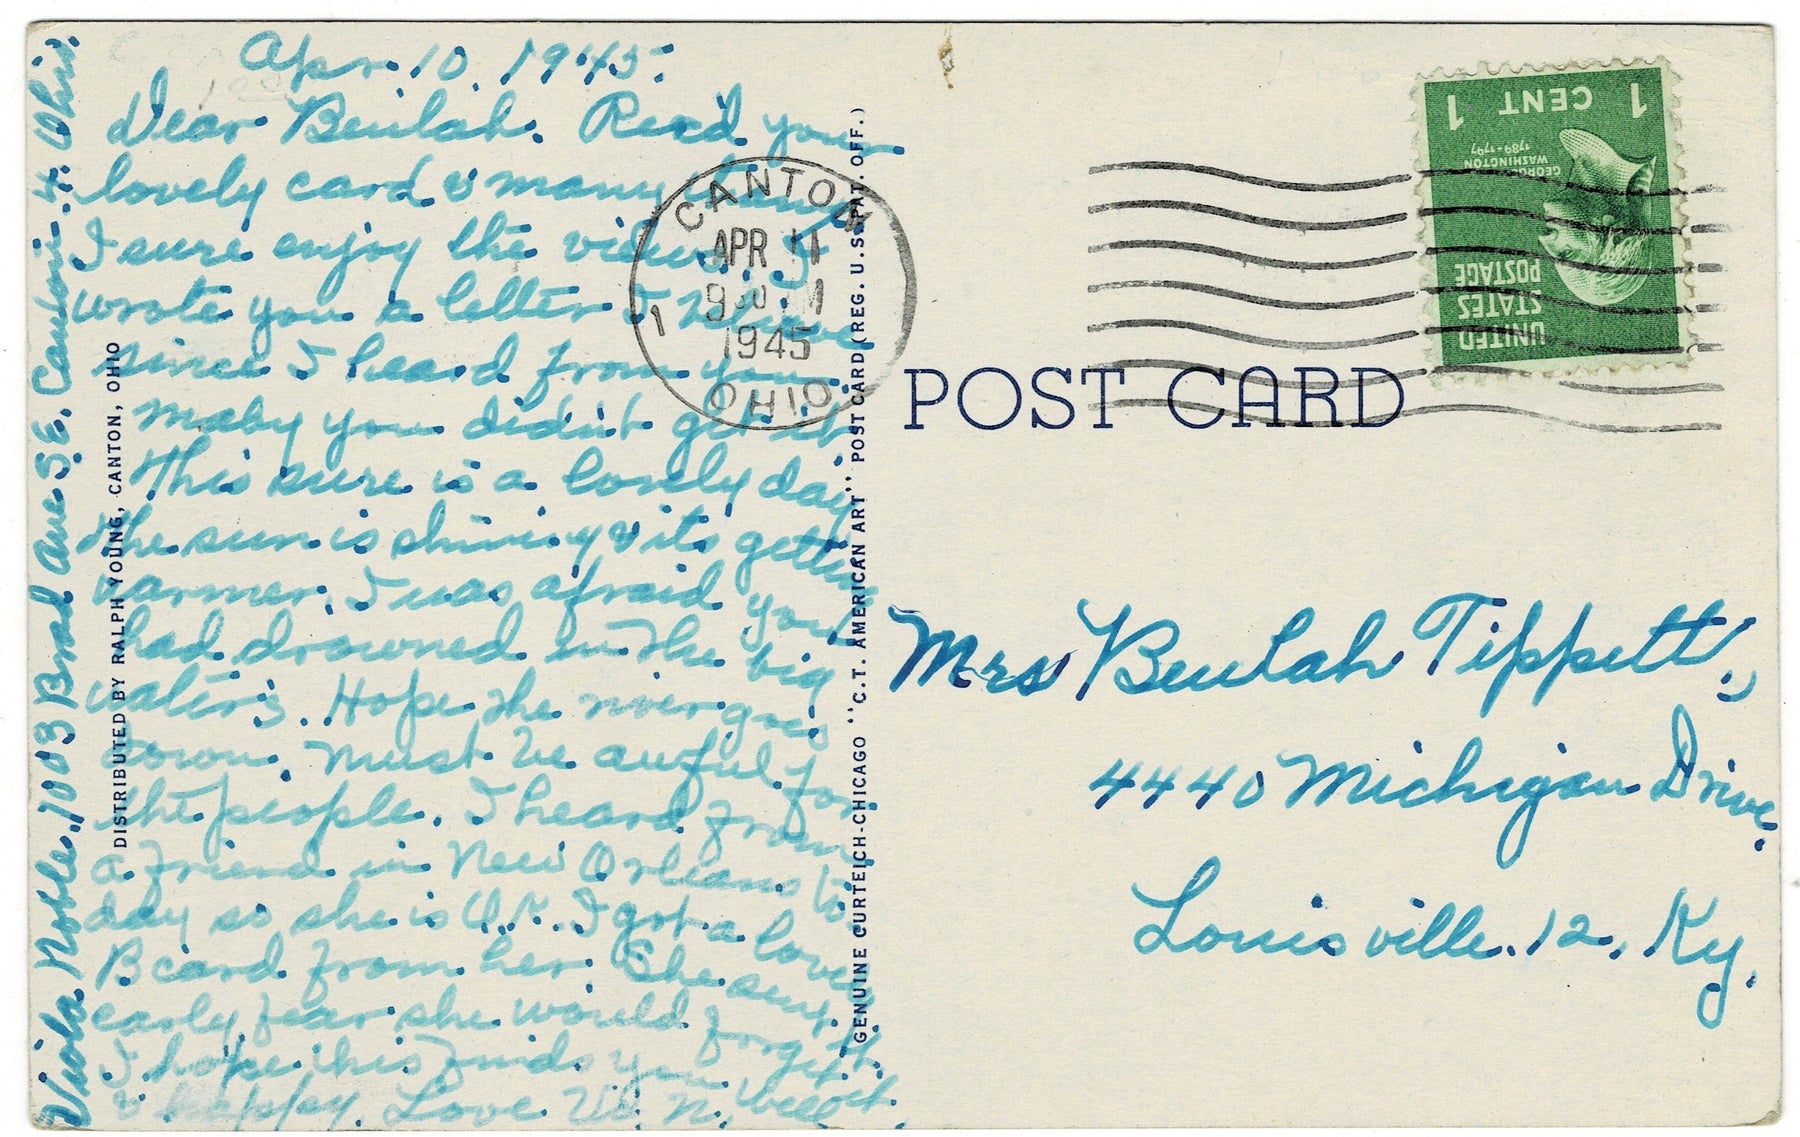 Apr. 10, 1945.
Dear Beulah. Rec'd your
lovely card & many thanx
I sure enjoy the views. I
wrote you a letter I believe
since I heard from you.
Maby you didn't get it
This sure is a lovely day
The sun is shining & its getting
warmer. I was afraid you
had drowned in the big
waters. Hope the river goes
down. Must be awful for
the people. I heard from
a friend in New Orleans to
day so she is O.K. I got a lovely
B card from her. She sent it
early fear she would forget it.
I hope this finds you well
& happy. Love V. N.
Viola Noble. 1003 Broad Ave S.E. Canton. 4. Ohio.
DISTRIBUTED BY RALPH YOUNG, CANTON, OHIO
GENUINE CURTEICH-CHICAGO "C.T. AMERICAN ART" POST CARD (REG. U.S. PAT. OFF.)
CANTON
APR 11
9 30 M
1945
1
OHIO
POST CARD
1 CENT 1
GEORGE
WASHINGTON
1789-1797
UNITED
STATES
POSTAGE
Mrs Beulah Tippett,
4440 Michigan Drive.
Louisville. 12. Ky.